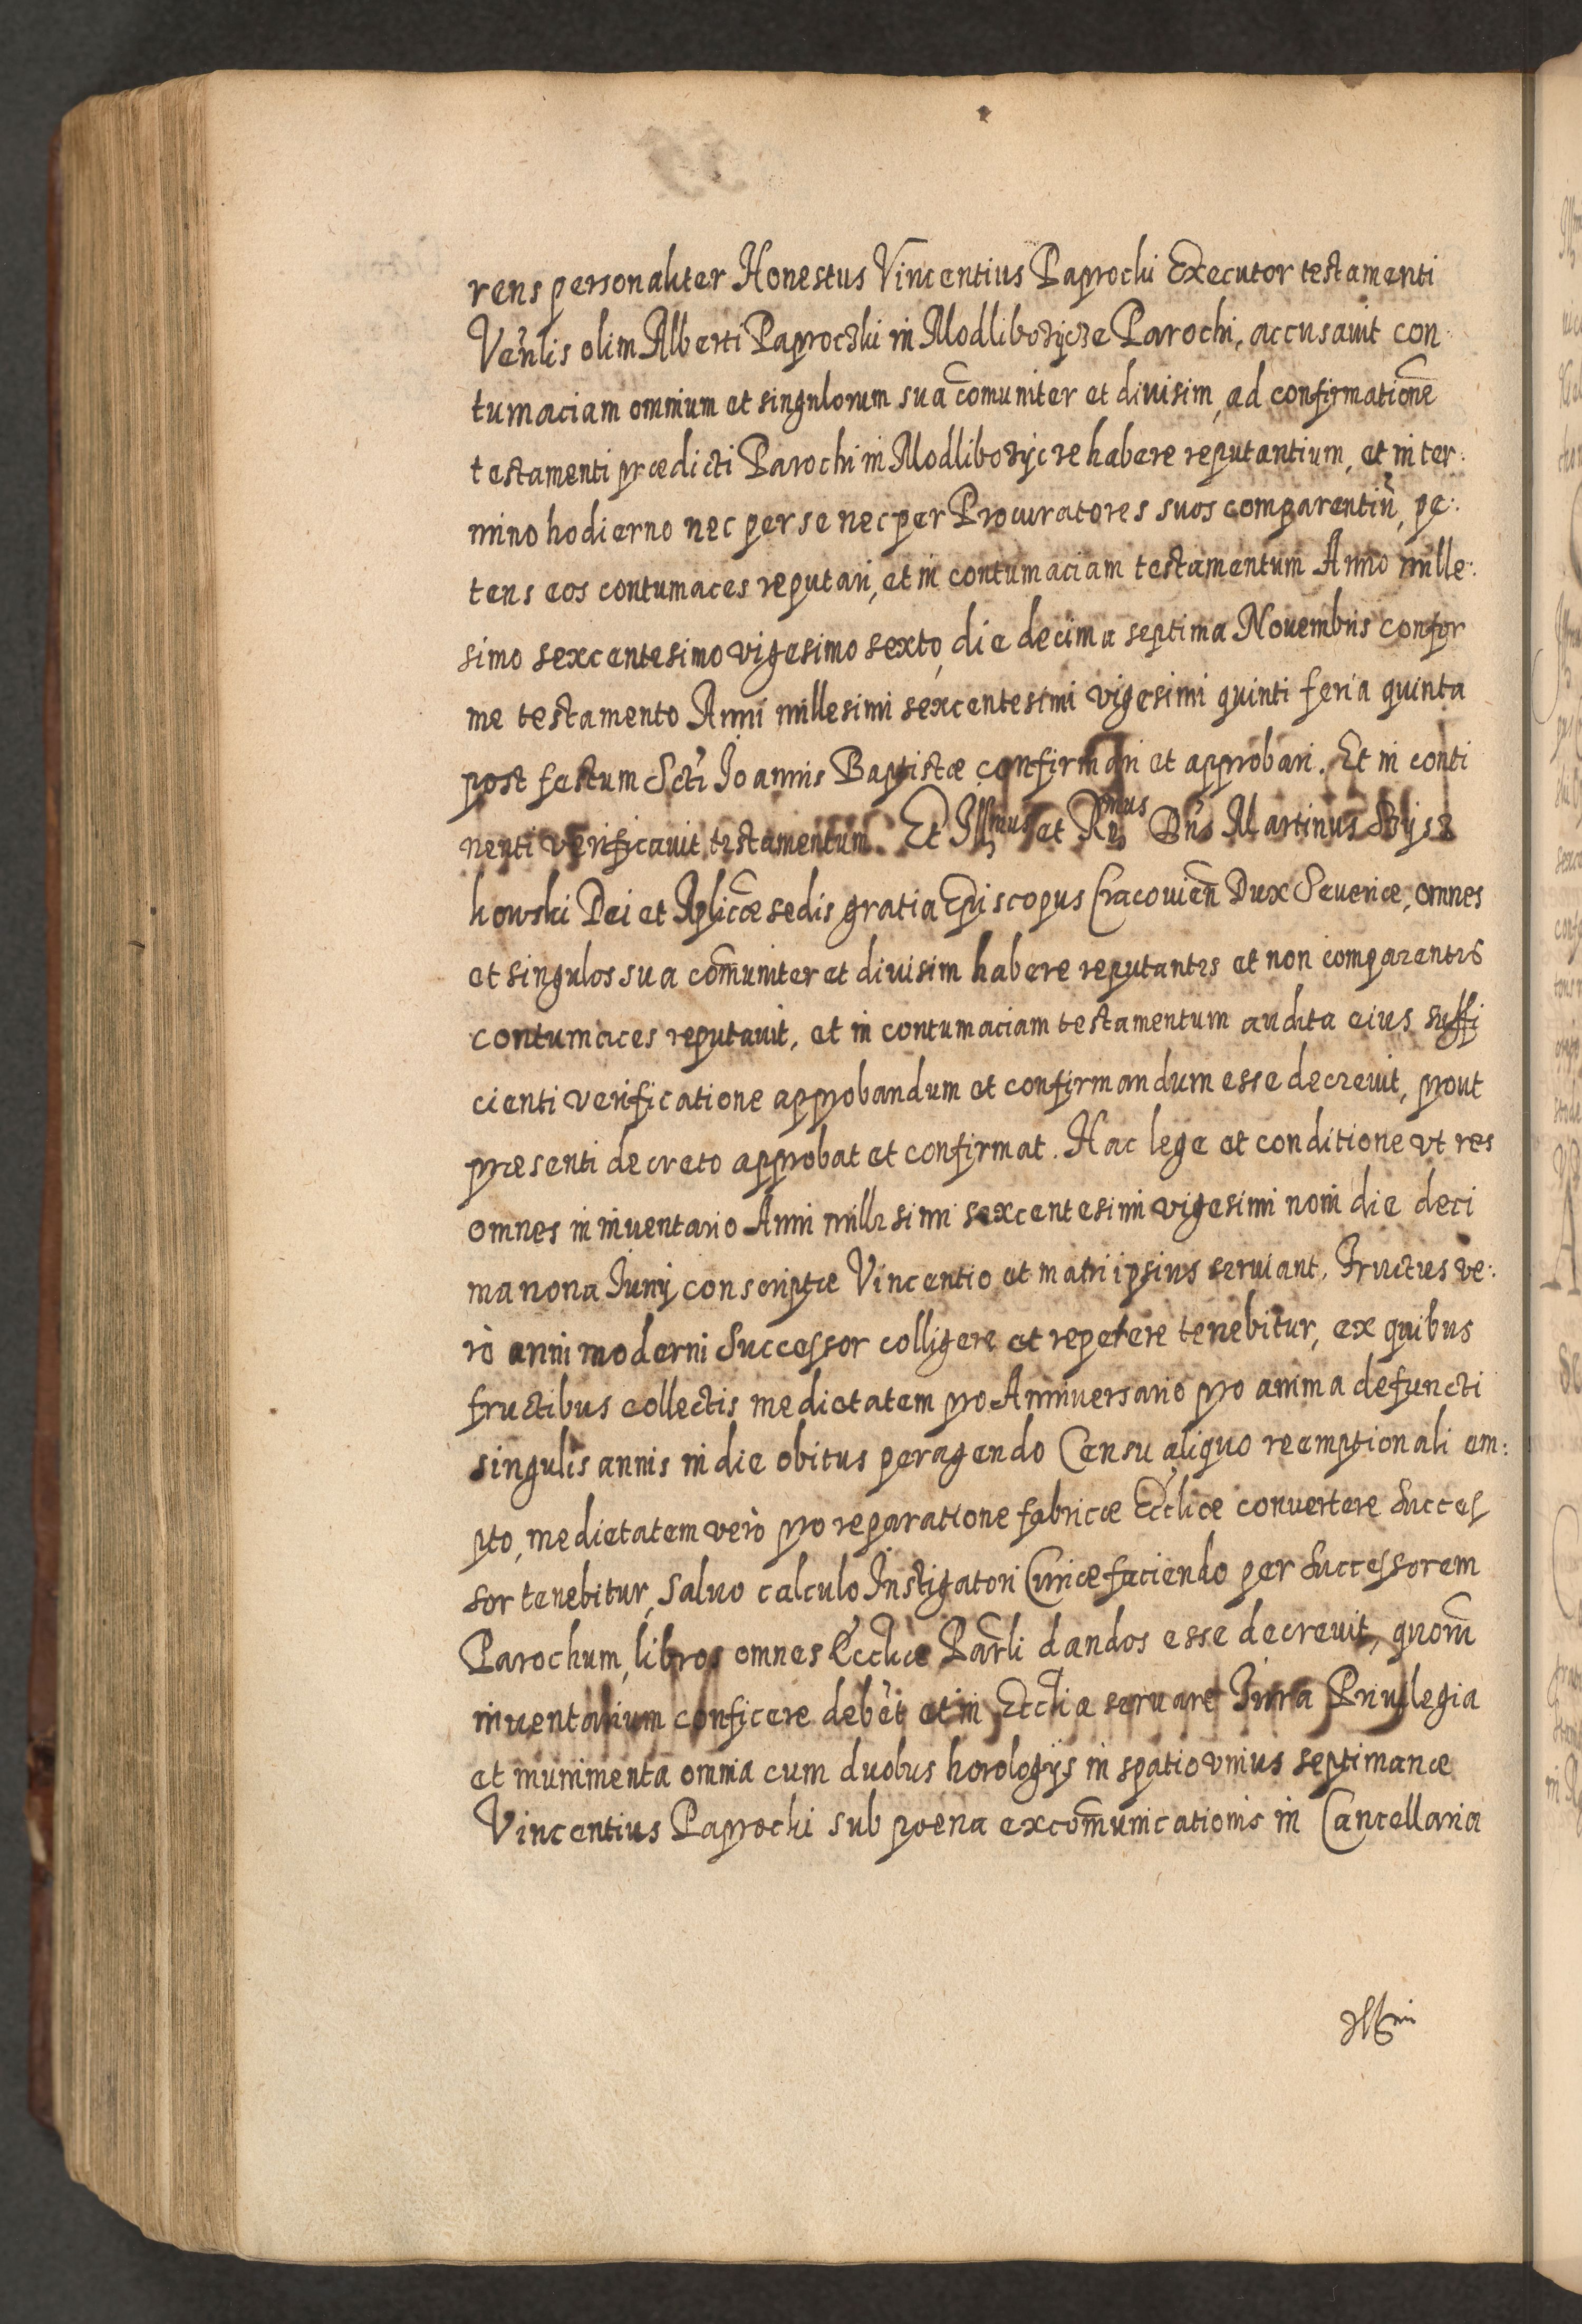 rens personaliter Honestus Vincentius Paprocki Executor testamenti
Venlis olim Alberti Paproczki in Modliborzycze Parochi, accusauit con
tumaciam omnium et singulorum sua com̄uniter et diuisim, ad confirmationē
testamenti prædicti Parochi in Modliborzycze habere reputantium, et in ter:
mino hodierno nec per se nec per Procuratores suos comparentiū, pe:
tens eos contumaces reputari, et in contumaciam testamentum Anno mille:
simo sexcentesimo vigesimo sexto, die decima septima Nouembris confor
me testamento Anni millesimi sexcentesimi vigesimi quinti feria quinta
post festum Scti Joannis Baptistæ confirmari et approbari. Et in conti
nenti verificauit testamentum. Et Illmus et Rmus Dns Martinus Szysz
kowski Dei et Aplicæ sedis gratia Episcopus Cracouien Dux Seueriæ, omnes
et singulos sua com̄uniter et diuisim habere reputantes et non comparentes
contumaces reputauit, et in contumaciam testamentum audita eius suffi
cienti verificatione approbandum et confirmandum esse decreuit, prout
presenti decreto approbat et confirmat. Hac lege et conditione vt res
omnes in inuentario Anni millesimi sexcentesimi vigesimi noni die deci
ma nona Junij conscriptæ Vincentio et matri ipsius seruiant. Fructus ve:
rò anni moderni Successor colligere et repetere tenebitur, ex quibus
fructibus collectis medietatem pro Anniuersario pro anima defuncti
singulis annis in die obitus peragendo Censu aliquo reemptionali em:
pto, medietatem verò pro reparatione fabricæ Ecclicæ conuertere Succes
sor tenebitur, saluo calculo Instigatori Curiæ faciendo per Successorem
Parochum, libros omnes Eccliæ Parli dandos esse decreuit, quorū
inuentarium conficere debet et in Ecclia seruare Jura Priuilegia
et munimenta omnia cum duobus horologijs in spatio vnius septimanæ
Vincentius Paprocki sub poena excom̄unicationis in Cancellaria
Illmi